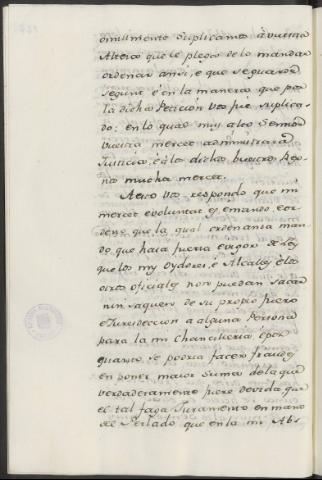 omilmente Suplicamos à vuestra
Alteza que le plega de lo mandar
ordenar ansi, é que se guarde
segunt é en la manera que por
la dicha Peticion vos fue suplica-
do: en lo qual muy alto Sennor
vuestra merced administrará
Justicia, é á los dichos vuestros Rey-
nos mucha merced.
A esto vos respondo que mi
merced é voluntat es, é mando, é or-
deno que la qual ordenanza man-
do que haia fuerza é vigor de Ley
que los mis Oydores, é Alcaldes, é los
otros oficiales non puedan sacar
nin saquen de su propio fuero
é Jurisdiccion á alguna Persona
para la mi Chancilleria, é por
quanto se podria facer fraude
en poner maior suma de la que
verdaderamente fuere devida que
el tal faga Juramento en mano
del Perlado que en la mi Abs-